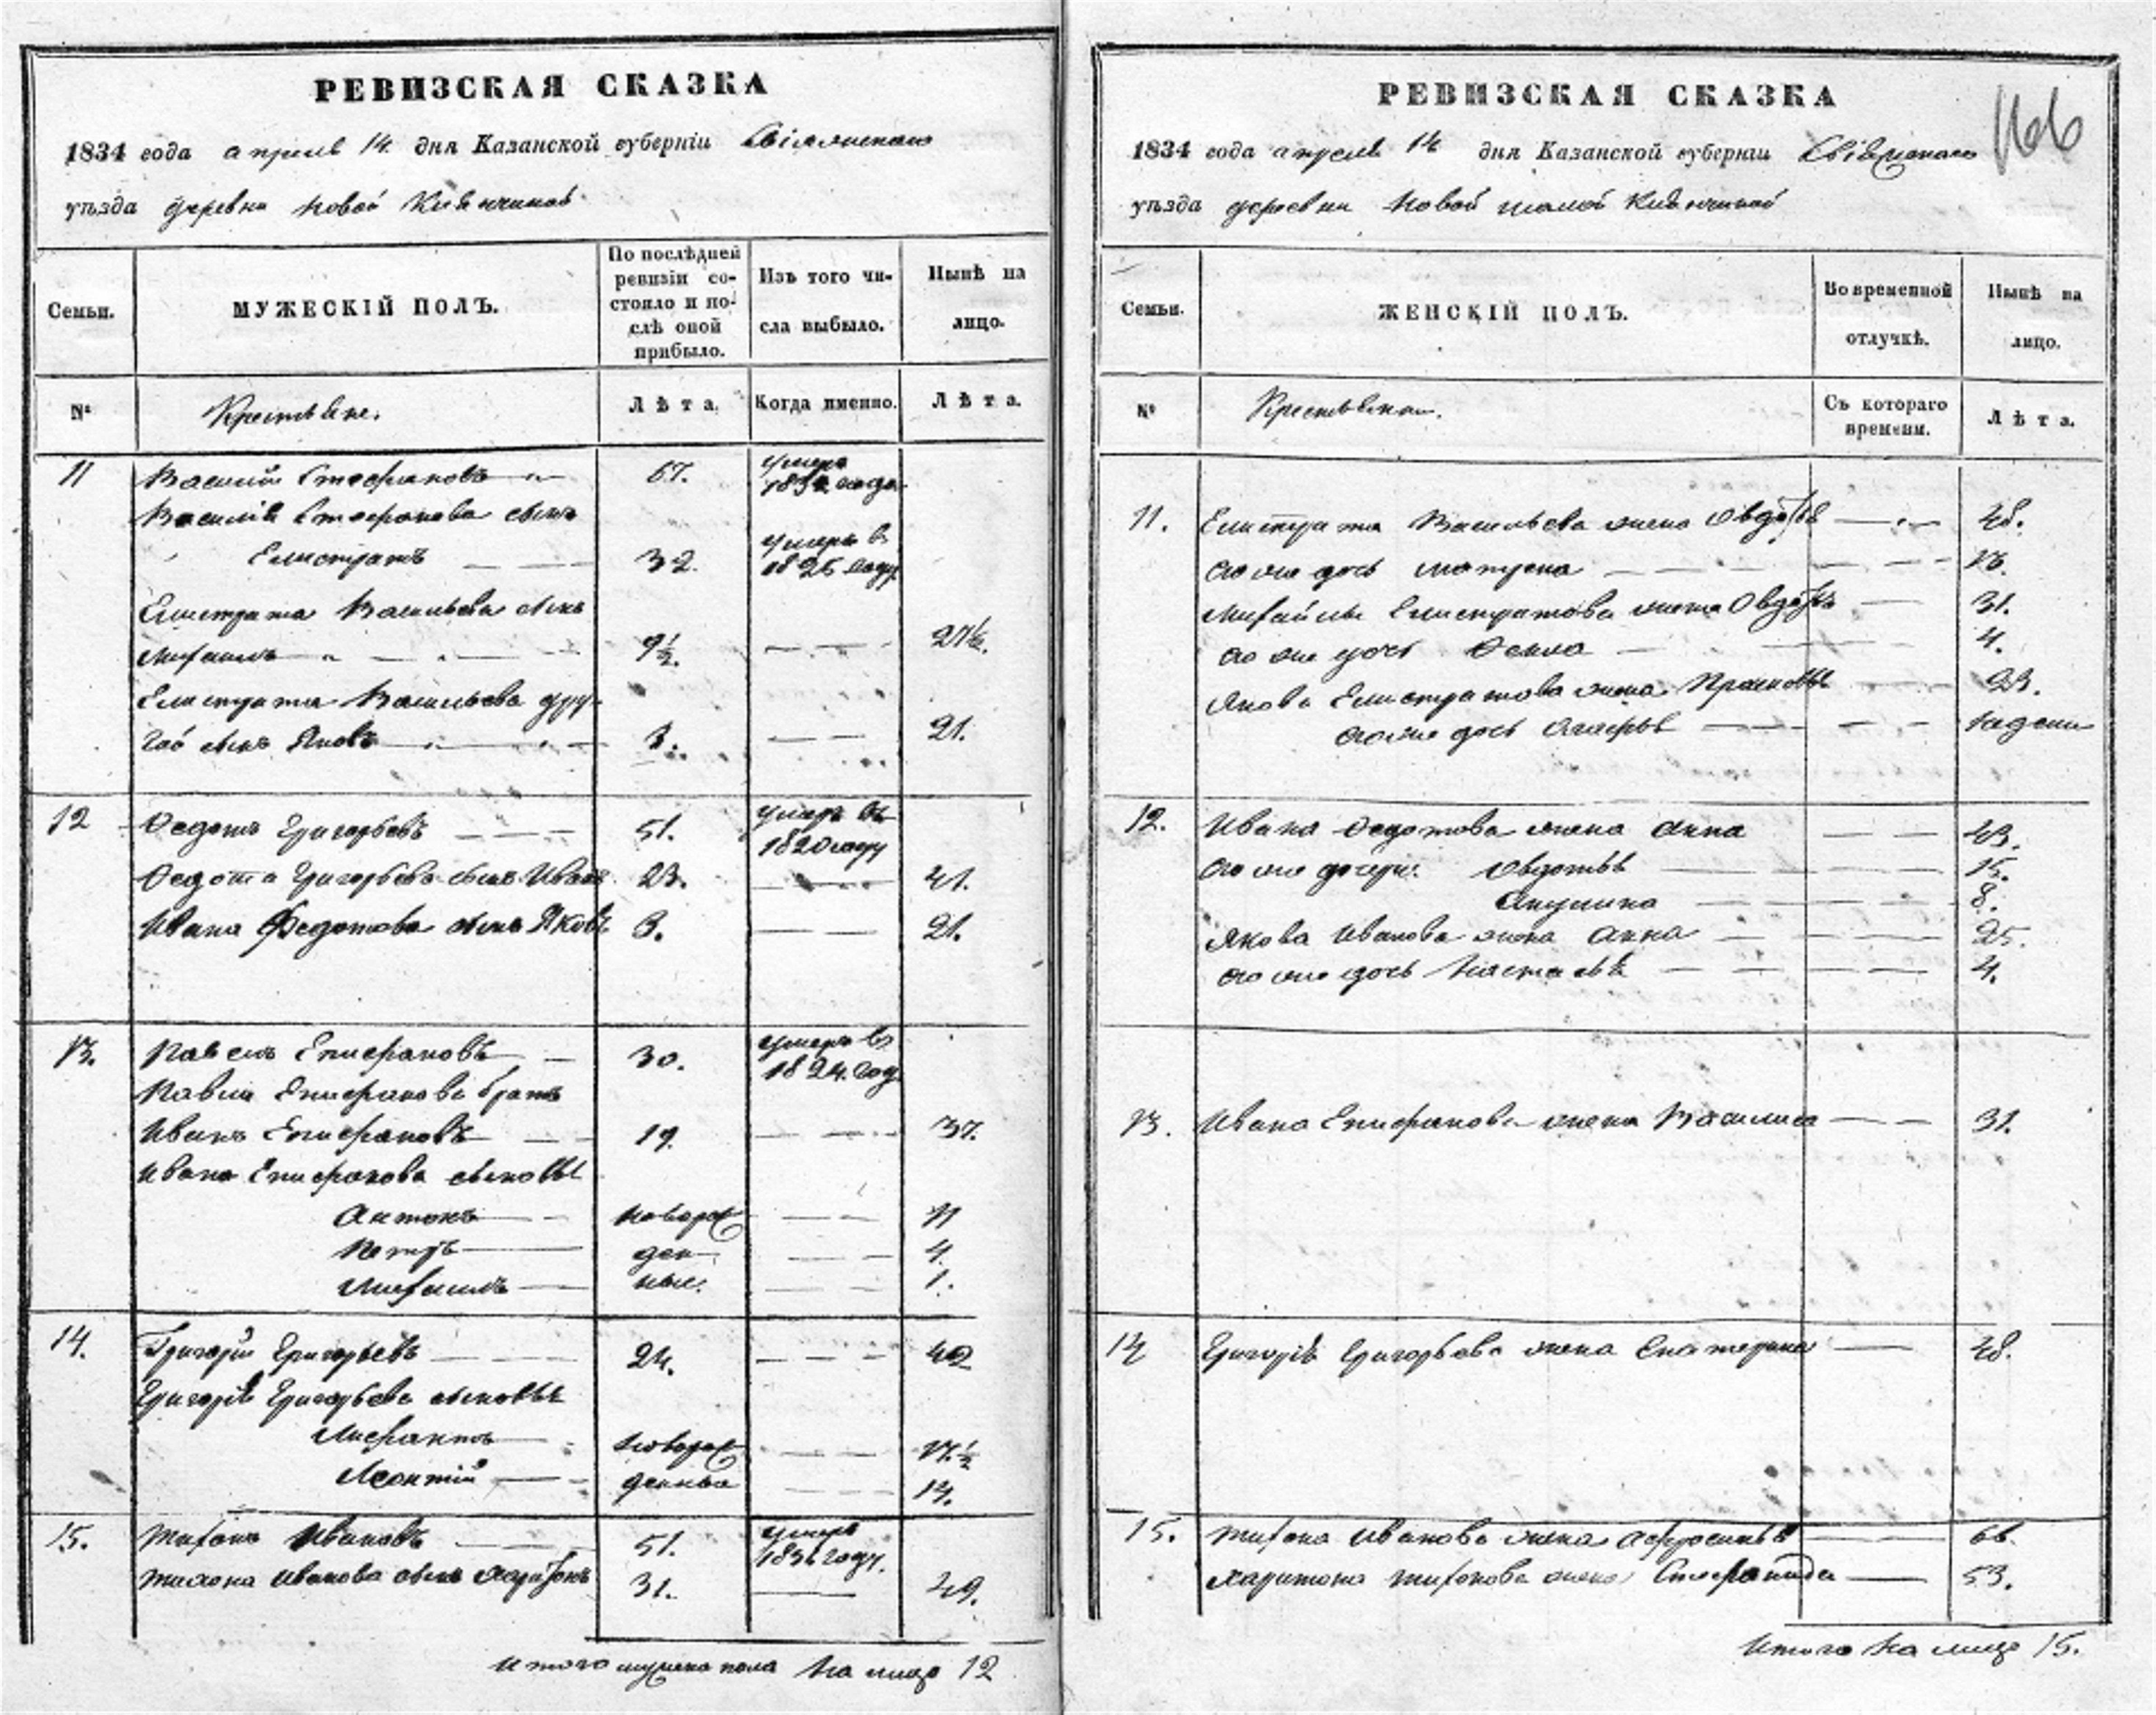 РЕВИЗСКАЯ СКАЗКА
1834 года апреля 14 дня Казанской губерніи Свіяжскаго
уѣзда деревни Новой
Семьи.
МУЖЕСКІЙ ПОЛЪ.
По послѣдней
ревизіи со-
стояло и по-
слѣ оной
прибыло.
Изъ того чи-
сла выбыло.
Нынѣ на
лицо.
№
Крестьяне.
Лѣта.
Когда именно.
Лѣта.
11 Василий Стефановъ 67. умеръ
года
Василія Стефанова сынъ
Елистратъ 32. умеръ въ
году
Елистрата Васильева сынъ
Михаилъ 9½. 27½.
Елистрата Васильева дру-
гой сынъ Яковъ 3. 21.
12 Федотъ Григорьевъ 51. умеръ въ
1820 году
Федота Григорьева сынъ Иванъ 23. 41.
Ивана Федотова сынъ Яковъ 3. 21.
13. Павелъ Епифановъ 30. умеръ въ
1824. год
Павла Епифанова братъ
Иванъ Епифановъ 19. 37.
Ивана Епифанова сыновья
Антонъ новорож 11
Петръ ден 4.
Михаилъ ные. 1.
14. Григорій Григорьевъ 24. 42
Григорія Григорьева сыновья
новорож 17.½
Леонтій денные 14.
15. Тихонъ Ивановъ 51. умеръ
году.
Тихона Иванова сынъ Харитонъ 31. 49.
Итого мужска пола на лицо 12
РЕВИЗСКАЯ СКАЗКА
166
1834 года апреля 14 дня Казанской губерніи Свіяжскаго
уѣзда деревни Новой малой
Семьи.
ЖЕНСКІЙ ПОЛЪ.
Во временной
отлучкѣ.
Нынѣ на
лицо.
№
Съ котораго
времени.
Лѣта.
11. Елистрата Васильева жена Овдотья 48.
его же дочь Матрена
Михайлы Елистратова жена Овдотья 31.
его же дочь Фекла 4.
Якова Елистратова жена Прасковья 23.
его же дочь
12. Ивана Федотова жена Анна 43.
его же дочери Овдотья 15.
Акулина 8.
Якова Иванова жена Анна 25.
его же дочь Настасья 4.
13. Ивана Епифанова жена Василиса 31.
14 Григорія Григорьева жена Екатерина 48.
15. Тихона Иванова жена Афросинья 66.
Харитона Тихонова жена Степанида 53.
Итого на лицо 15.